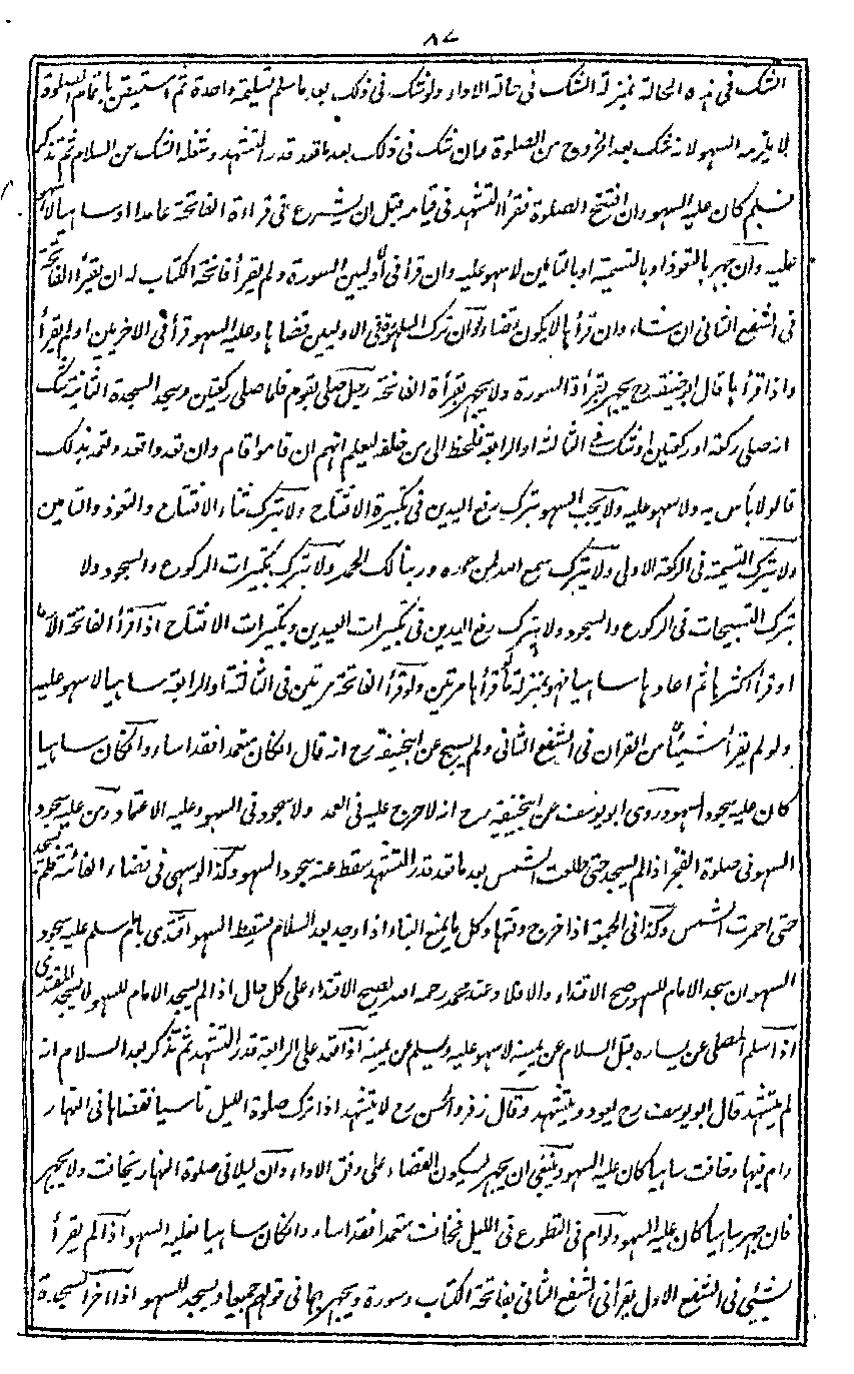 ٨٧
الشك فى هذه الحالة بمنزلة الشك فى حالة الاداء ولو شك فى ذلك بعد ما سلم تسليمة واحدة ثم استيقن باتمام الصلوة
لا يلزمه السهو لانه شك بعد الخروج من الصلوة وان شك فى ذلك بعد ما قعد قدر التشهد وشغله الشك عن السلام ثم تذكر
فسلم كان عليه السهو وان افتتح الصلوة فقرأ التشهد فى قيامه قبل ان يشرع فى قراءة الفاتحة عامدا او ساهيا لا سهو
عليه وان جهر بالتعوذ او بالتسمية او بالتامين لا سهو عليه وان قرأ فى أوليين السورة ولم يقرأ فاتحة الكتاب له ان يقرأ الفاتحة
فى الشفع الثانى ان شاء وان قرأها لا يكون قضاء وان ترك السورة فى الاوليين قضاها وعليه السهو قرأ فى الاخريين او لم يقرأ
واذا قرأها قال ابو حنيفة رح يجهر بقراءة السورة ولا يجهر بقراة الفاتحة رجل صلى بقوم فلما صلى ركعتين وسجد السجدة الثانية شك
انه صلى ركعة او ركعتين او شك فى الثالثة او الرابعة فلحظ الى من خلفه ليعلم انهم ان قاموا قام وان قعدوا قعد وتعمد بذلك
قالوا لا بأس به ولا سهو عليه ولا يجب السهو بترك رفع اليدين فى تكبيرة الافتتاح ولا بترك ثناء الافتتاح والتعوذ والتامين
ولا بترك التسمية فى الركعة الاولى ولا بترك سمع الله لمن حمده وربنا لك الحمد ولا بترك تكبيرات الركوع والسجود ولا
بترك التسبيحات فى الركوع والسجود ولا بترك رفع اليدين فى تكبيرات العيدين وتكبيرات الافتتاح اذا قرأ الفاتحة الا
او قرأ اكثرها ثم اعادها ساهيا فهو بمنزلة ما قرأها مرتين ولو قرأ الفاتحة مرتين فى الثالثة او الرابعة ساهيا لا سهو عليه
ولو لم يقرأ شيئا من القران فى الشفع الثانى ولم يسبح عن ابيحنيفة رح انه قال ان كان متعمدا فقد اساء وان كان ساهيا
كان عليه سجود السهو وروى ابو يوسف عن ابيحنيفة رح انه لا حرج عليه فى العمد ولا سجود فى السهو وعليه الاعتماد ومن عليه سجود
السهو فى صلوة الفجر اذا لم يسجد حتى طلعت الشمس بعد ما قعد قدر التشهد سقط عنه سجود السهو وكذا لو سهى فى قضاء الفائتة فلم يسجد
حتى احمرت الشمس وكذا فى الجمعة اذا خرج وقتها وكل ما يمنع البناء اذا وجد بعد السلام يسقط السهو اقتدى بامام سلم عليه سجود
السهو ان سجد الامام للسهو صح الاقتداء والا فلا وعند محمد رحمه الله يصح الاقتداء على كل حال اذا لم يسجد الامام للسهو لا يسجد المقتدى
اذا سلم المصلى عن يساره قبل السلام عن يمينه لا سهو عليه ويسلم عن يمينه اذا قعد على الرابعة قدر التشهد ثم تذكر بعد السلام انه
لم يتشهد قال ابو يوسف رح يعود ويتشهد وقال زفر والحسن رح لا يتشهد اذا ترك صلوة الليل ناسيا فقضاها فى النهار
وام فيها وخافت ساهيا كان عليه السهو وينبغى ان يجهر ليكون القضاء على وفق الاداء وان ام ليلا فى صلوة النهار يخافت ولا يجهر
فان جهر ساهيا كان عليه السهو ولو ام فى التطوع فى الليل فخافت متعمدا فقد اساء وان كان ساهيا فعليه السهو اذا لم يقرأ
بشيئ فى الشفع الاول يقرأ فى الشفع الثانى بفاتحة الكتاب وسورة ويجهر بهما فى قولهم جميعا ويسجد للسهو اذا اخر السجدة